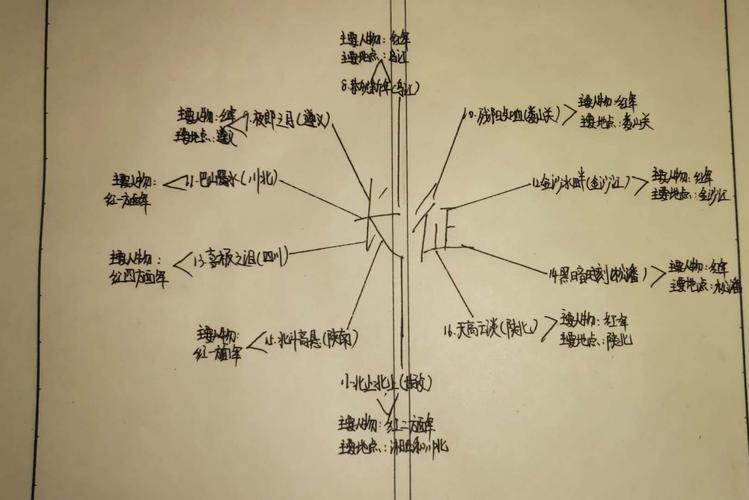 主要人物:红军
主要地点:乌江
8.苏维埃新年(乌江)
主要人物:红军
主要地点:遵义
9.夜郎之月(遵义)
10.残阳如血(娄山关)
主要人物:红军
主要地点:娄山关
主要人物:
红一方面军
11.巴山蜀水(川北)
12.金沙水畔(金沙江)
主要人物:红军
主要地点:金沙江
长征
主要人物:
红四方面军
13.(四川)
14.黑暗时刻(松潘)
主要人物:红军
主要地点:松潘
主要人物:
红一方面军
15.北斗高悬(陕南)
16.天高云淡(陕北)
主要人物:红军
主要地点:陕北
17.北上北上(甘孜)
主要人物:红二方面军
主要地点:湘西和川北